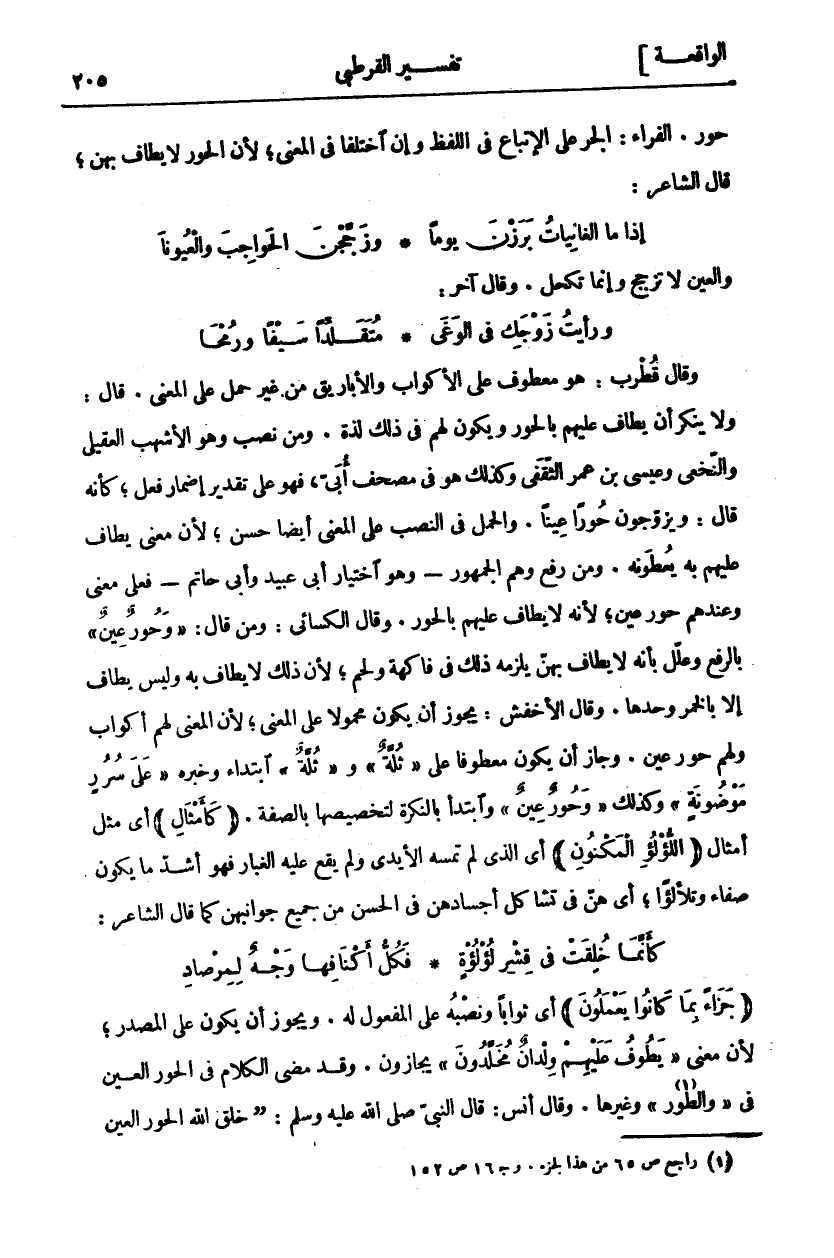 الواقعة ] تفسير القرطبى ٢٠٥
حور . الفراء : الجر على الإتباع فى اللفظ وإن ٱختلفا فى المعنى؛ لأن الحور لا يطاف بهن ؛
قال الشاعر :
إذا ما الغانِياتُ بَرَزْنَ يوماً * وزَجَّجْنَ الحَواجِبَ والْعُيوناَ
والعين لا تزجج وإنما تكحل . وقال آخر :
ورأيتُ زَوْجَكِ فى الوَغَى * مُتَقَلِّدًا سَيْفًا ورُمْحَا
وقال قُطْرب : هو معطوف على الأكواب والأباريق من غير حمل على المعنى . قال :
ولا ينكر أن يطاف عليهم بالحور ويكون لهم فى ذلك لذة . ومن نصب وهو الأشهب العقيلى
والنَّخعى وعيسى بن عمر الثَّقَفى وكذلك هو فى مصحف أُبَىّ ، فهو على تقدير إضمار فعل ؛ كأنه
قال : ويزوّجون حُورًا عِيناً . والحمل فى النصب على المعنى أيضا حسن ؛ لأن معنى يطاف
عليهم به يُعطَونه . ومن رفع وهم الجمهور — وهو ٱختيار أبى عبيد وأبى حاتم — فعلى معنى
وعندهم حور عين؛ لأنه لا يطاف عليهم بالحور . وقال الكسائى : ومن قال: « وَحُورٌ عِينٌ»
بالرفع وعلّل بأنه لا يطاف بهنّ يلزمه ذلك فى فاكهة ولحم ؛ لأن ذلك لا يطاف به وليس يطاف
إلا بالخمر وحدها . وقال الأخفش : يجوز أن يكون محمولا على المعنى ؛ لأن المعنى لهم أكواب
ولهم حور عين . وجاز أن يكون معطوفا على « ثُلَّةٌ » و « ثُلَّةٌ » ٱبتداء وخبره « عَلَى سُرُرٍ
مَوْضُونَةٍ » وكذلك « وَحُورٌ عِينٌ » وٱبتدأ بالنكرة لتخصيصها بالصفة . ﴿ كَأَمْثَالِ ﴾ أى مثل
أمثال ﴿ اللُّؤْلُؤِ الْمَكْنُونِ ﴾ أى الذى لم تمسه الأيدى ولم يقع عليه الغبار فهو أشدّ ما يكون
صفاء وتلألؤًا ؛ أى هنّ فى تشاكل أجسادهن فى الحسن من جميع جوانبهن كما قال الشاعر :
كَأَنَّمَا خُلِقَتْ فى قِشْرِ لُؤْلُؤَةٍ * فَكُلُّ أَكْنَافِها وَجْهٌ لِمِرْصادِ
﴿ جَزَاءً بِمَا كَانُوا يَعْمَلُونَ ﴾ أى ثواباً ونصْبُه على المفعول له . ويجوز أن يكون على المصدر ؛
لأن معنى « يَطُوفُ عَلَيْهِمْ وِلْدانٌ مُخَلَّدُونَ » يجازون . وقد مضى الكلام فى الحور العين
فى « والطُّور (١) » وغيرها . وقال أنس: قال النبىّ صلى الله عليه وسلم : ” خلق الله الحور العين
(١) راجع ص ٦٥ من هذا الجزء . وجـ ١٦ ص ١٥٢